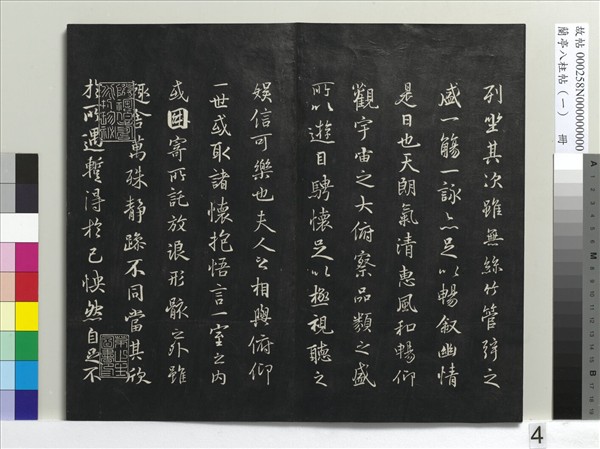 故帖 000258N000000000
蘭亭八柱帖（一） 冊
列坐其次雖無絲竹管弦之
盛一觴一詠亦足以暢敘幽情
是日也天朗氣清惠風和暢仰
觀宇宙之大俯察品類之盛
所以遊目騁懷足以極視聽之
娛信可樂也夫人之相與俯仰
一世或取諸懷抱悟言一室之內
或因寄所託放浪形骸之外雖
趣舍萬殊靜躁不同當其欣
於所遇暫得於己怏然自足不
4